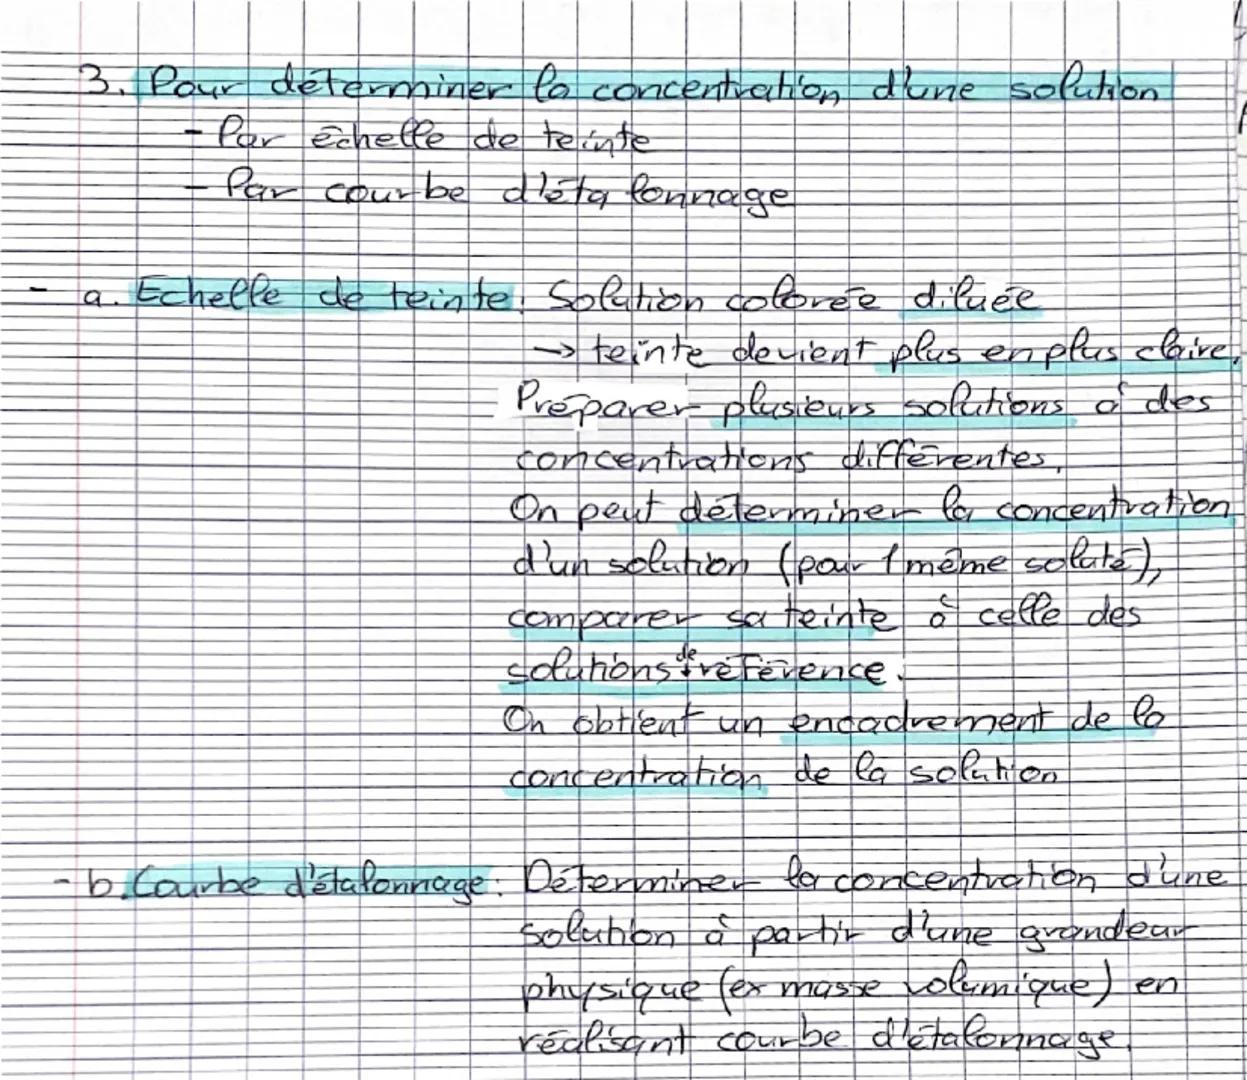 3. Pour déterminer la concentration d'une solution
- Par échelle de teinte
- Par courbe d'étalonnage
- a. Echelle de teinte: Solution colorée diluée
→ teinte devient plus en plus claire.
Préparer plusieurs solutions à des
concentrations différentes.
On peut déterminer la concentration
d'un solution (pour 1 même soluté),
comparer sa teinte à celle des
solutions de référence.
On obtient un encadrement de la
concentration de la solution
- b. Courbe d'étalonnage: Déterminer la concentration d'une
solution à partir d'une grandeur
physique (ex masse volumique) en
réalisant courbe d'étalonnage.